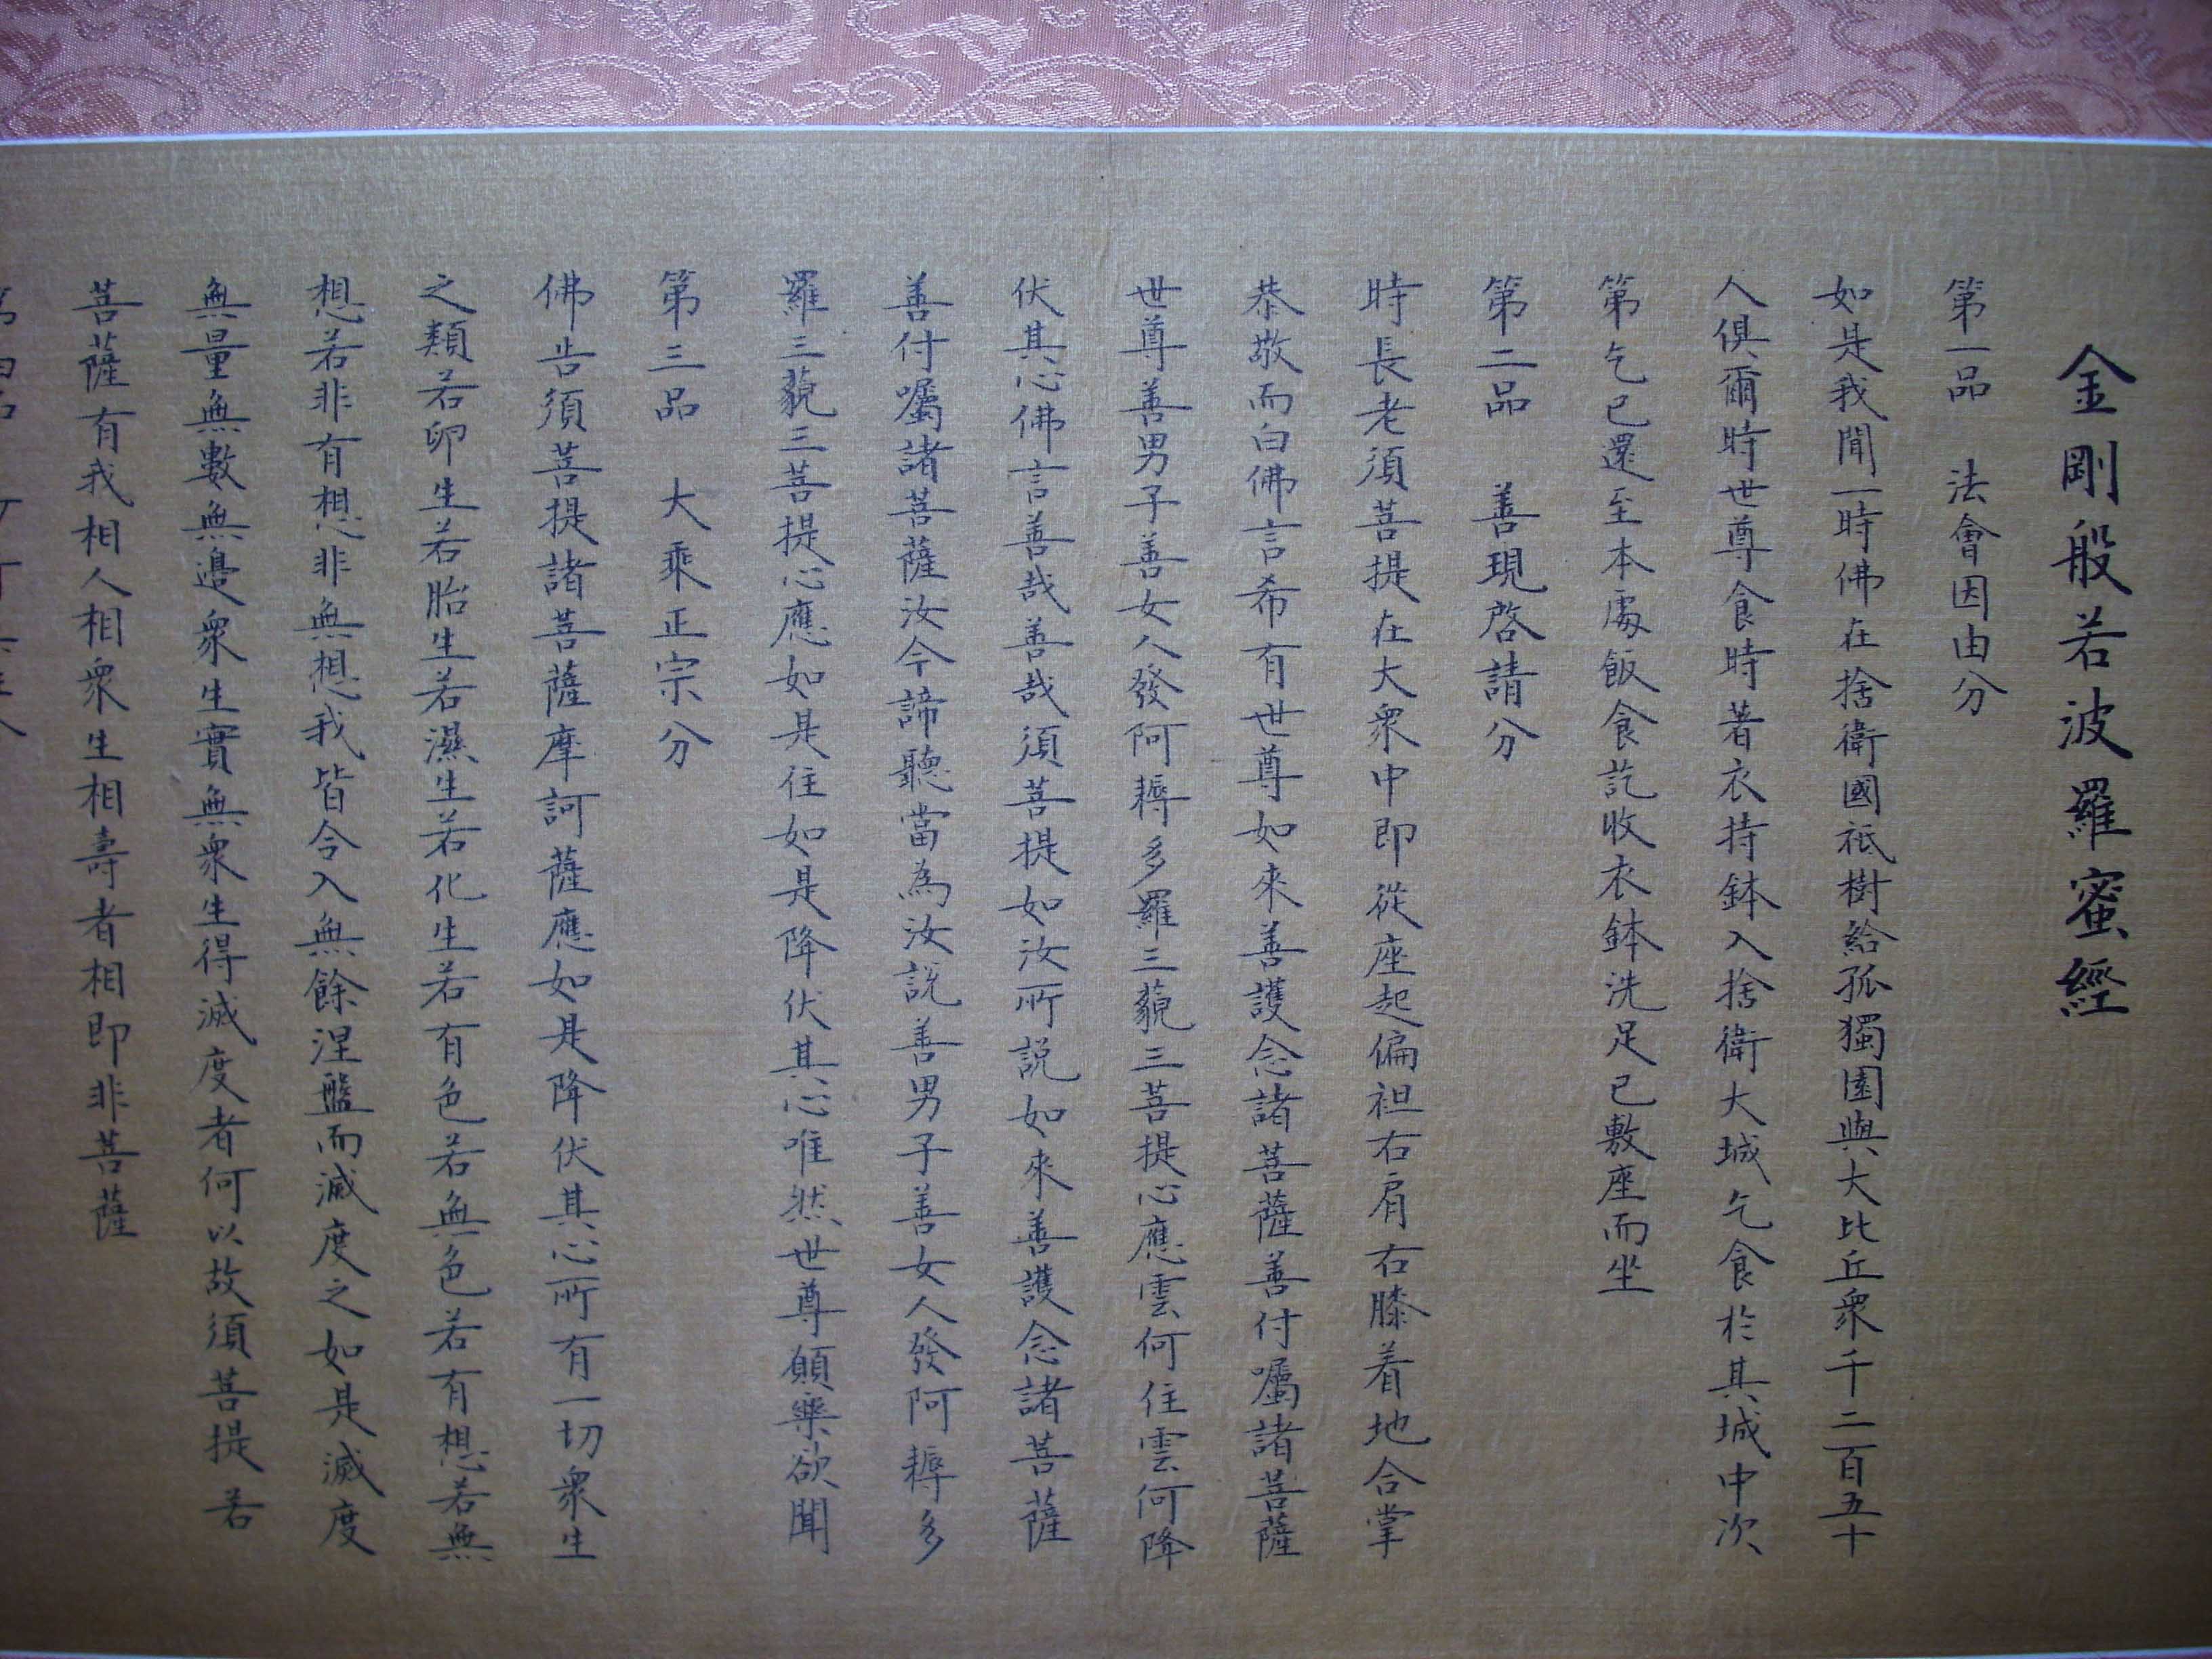 金剛般若波羅蜜經
第一品 法會因由分
如是我聞一時佛在捨衛國祇樹給孤獨園與大比丘衆千二百五十
人俱爾時世尊食時著衣持鉢入捨衛大城乞食於其城中次
第乞已還至本處飯食訖收衣鉢洗足已敷座而坐
第二品 善現啓請分
時長老須菩提在大衆中即從座起偏袒右肩右膝着地合掌
恭敬而白佛言希有世尊如來善護念諸菩薩善付囑諸菩薩
世尊善男子善女人發阿耨多羅三藐三菩提心應雲何住雲何降
伏其心佛言善哉善哉須菩提如汝所説如來善護念諸菩薩
善付囑諸菩薩汝今諦聽當為汝説善男子善女人發阿耨多
羅三藐三菩提心應如是住如是降伏其心唯然世尊願樂欲聞
第三品 大乘正宗分
佛告須菩提諸菩薩摩訶薩應如是降伏其心所有一切衆生
之類若卵生若胎生若濕生若化生若有色若無色若有想若無
想若非有想非無想我皆令入無餘涅盤而滅度之如是滅度
無量無數無邊衆生實無衆生得滅度者何以故須菩提若
菩薩有我相人相衆生相壽者相即非菩薩